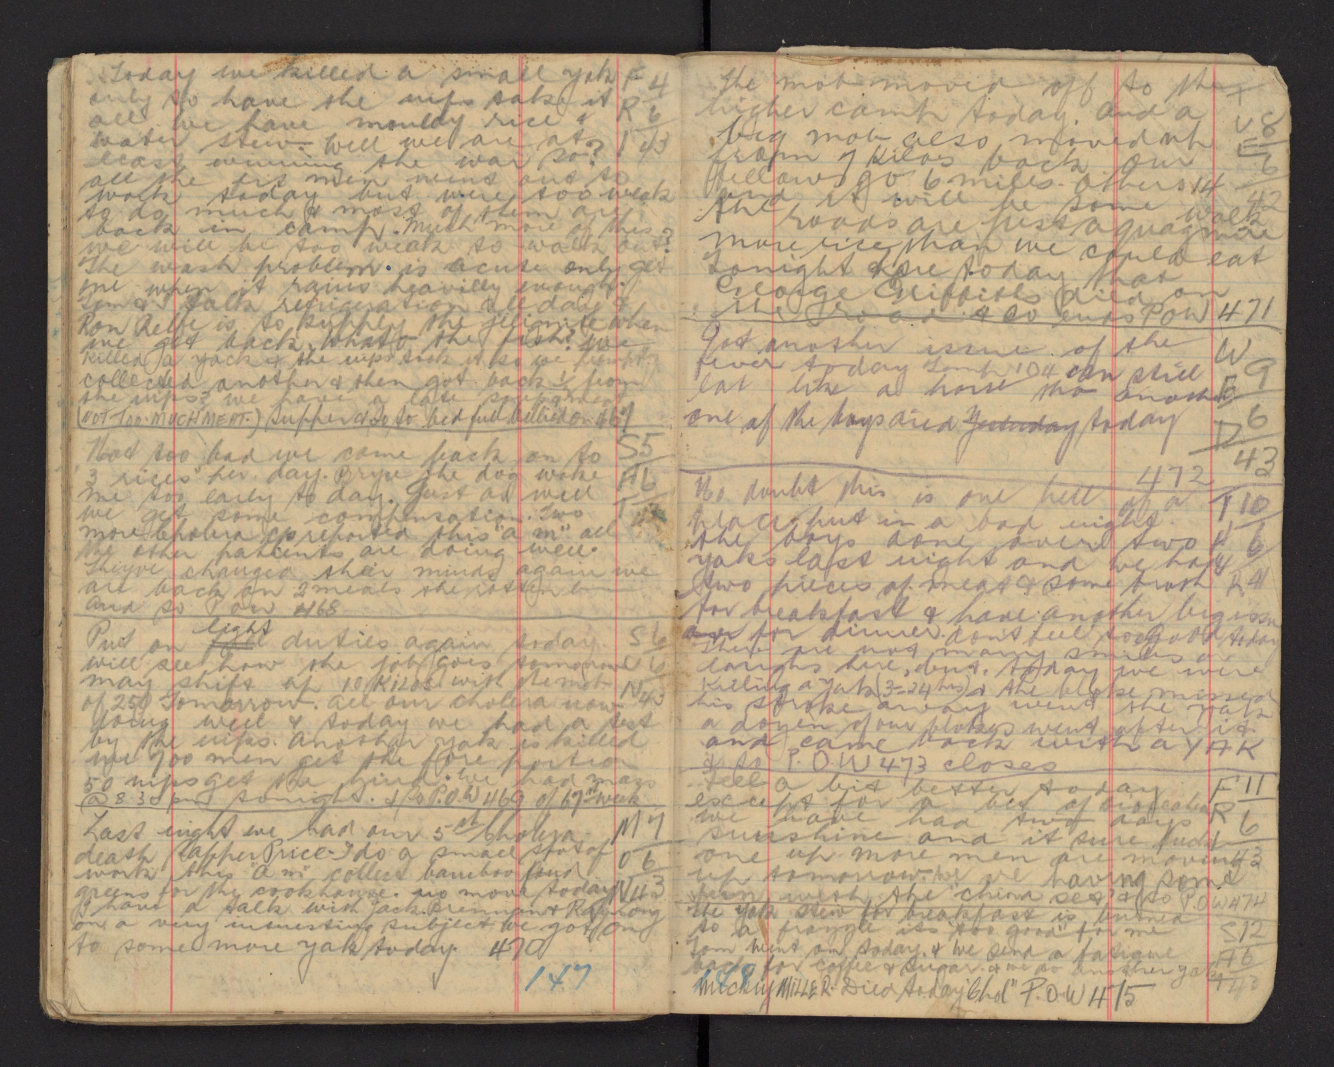 Today we killed a small yak F 4
only to have the nips take it R 6
all we have mouldy rice & I 43
water stew. Well we are at
least winning the war so?
all the fit men went out to
work today but were too weak
to do much & most of them are
back in camp. Much more of this
we will be too weak to walk out?
The wash problem is acute only get
one when it rains heavily enough.
Tom & I talk refrigeration all day &
Ron Relfe is to supply the when
we get back, what the fish? we
killed a yack & the nips took it so we
collected another & then got back ½ from
the nips? we have a late supper meat
(NOT TOO MUCH MEAT.) supper & so to bed full bellied on 467
That too bad we come back on to S 5
3 rices per day. Bryn the dog woke A 6
me too early today. Just as well T 43
we get some compensation. Two
more Cholera cs reported this "a.m" all
the other patients are doing well.
They've changed their minds again we
are back on 2 meals
and so P.O.W 468
light
Put on duties again today S 6
will see how the job goes tomorrow U 6
may shift up 10 Kilos with the mob N 43
of 250 Tomorrow. all our cholera now
doing well & today we had a test
by the nips. another yak is killed
we 700 men get the fore portion
50 nips get the hind. We had mass
@ 8.30 pm tonight. & so P.O.W 469 of 67th week
Last night we had our 5th Cholera M 7
death Sapper Price. I do a small spot of O 6
work this "a.m" collect bamboo for N 43
greens for the cookhouse. no move today
I have a talk with Jack Brennan & Ray
on a very interesting subject. we got on
to some more yak today. 470
147
The mob moved off to the T
higher camp today. and a U 8
big mob also moved up E 6
from 7 Kilos back. Our 43
fellows go 6 miles. others 14
and it will be some walk
the roads are just a quagmire
more rice than we could eat
tonight & here today that
George Griffiths died on
the road & so ends P.O.W 471
Got another issue of the W
fever today Temp 104 can still 9
eat like a horse tho another E
one of the boys died Yesterday today 6
D 43
472
No doubt this is one hell of a T 10
place, put in a bad night. H 6
the boys done over two U
yaks last night and we had R 43
two pieces of meat & some broth
for breakfast & have another big issue
for dinner. don't feel too good today
There are not many smiles or
laughs here, but. today we were
killing a yak (3-24 hrs) & the bloke missed
his stroke away went the yak
a dozen of our blokes went after it
and came back with a YAK
& so P.O.W 473 closes
Feel a bit better today F 11
except for a bit of R
we have had two days 6
sunshine and it sure bucks I
one up more men are moving 43
up tomorrow. we're having some
fun with the china set & so P.O.W 474
The yak stew for breakfast is burned
to a frazzle its too good for me S 12
Tom went out today & we send a fatigue A 6
back for coffee & sugar. & we do another yak T 43
148
Mickey MILLER. Died today "Chol" P.O.W 475